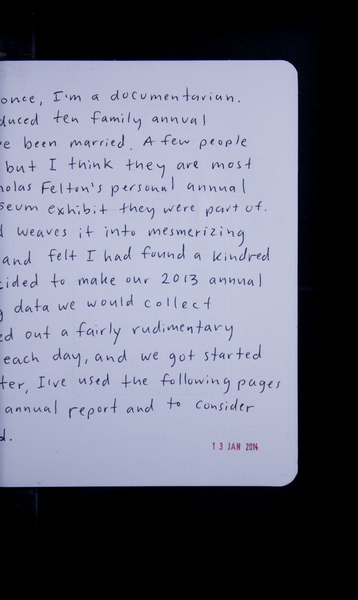 once, I'm a documentarian.
duced ten family annual
ve been married. A few people
but I think they are most
holas Felton's personal annual
seum exhibit they were part of.
d weaves it into mesmerizing
and felt I had found a kindred
cided to make our 2013 annual
g data we would collect
ed out a fairly rudimentary
each day, and we got started
ter, I've used the following pages
annual report and to consider
d.
13 JAN 2014